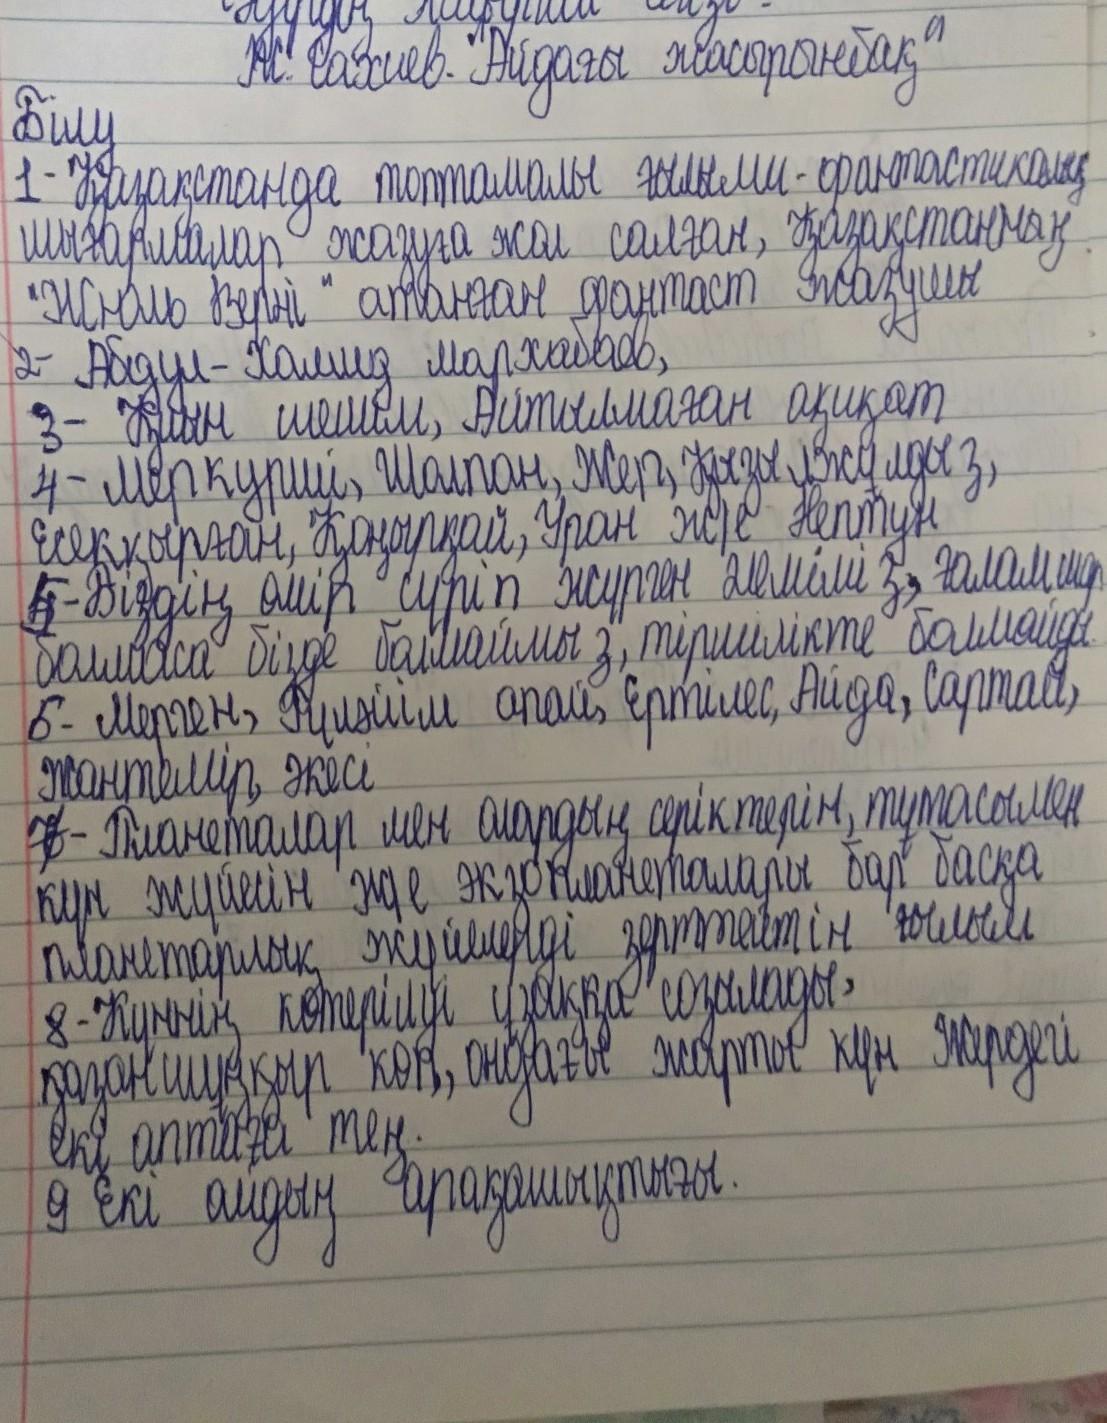 Ж. Сахиев. "Айдағы жасырынбақ"
Білу
1- Қазақстанда топтамалы ғылыми-фантастикалық
шығармалар жазуға жол салған, Қазақстанның
"Жюль Верні" атанған фантаст жазушы
2- Абдул-Хамид Мархабаев,
3- Қиын шешім, Айтылмаған ақиқат
4- Меркурий, Шолпан, Жер, Қызылжұлдыз,
Есекқырған, Қоңырқай, Уран және Нептун
5- Біздің өмір сүріп жүрген мекеміз, ғаламшар
болмаса бізде болмаймыз, тіршілікте болмайды.
6- Мерген, Гүлжім апай, Ертілес, Айда, Сартай,
Жантемір, әкесі
7- Планеталар мен олардың серіктерін, тұтасымен
күн жүйесін және экзопланеталары бар басқа
планетарлық жүйелерді зерттейтін ғылым
8- Күннің көтерілуі ұзаққа созылады,
қазаншұңқыр көп, ондағы жарты күн жердегі
екі аптаға тең.
9 Екі айдың арақашықтығы.